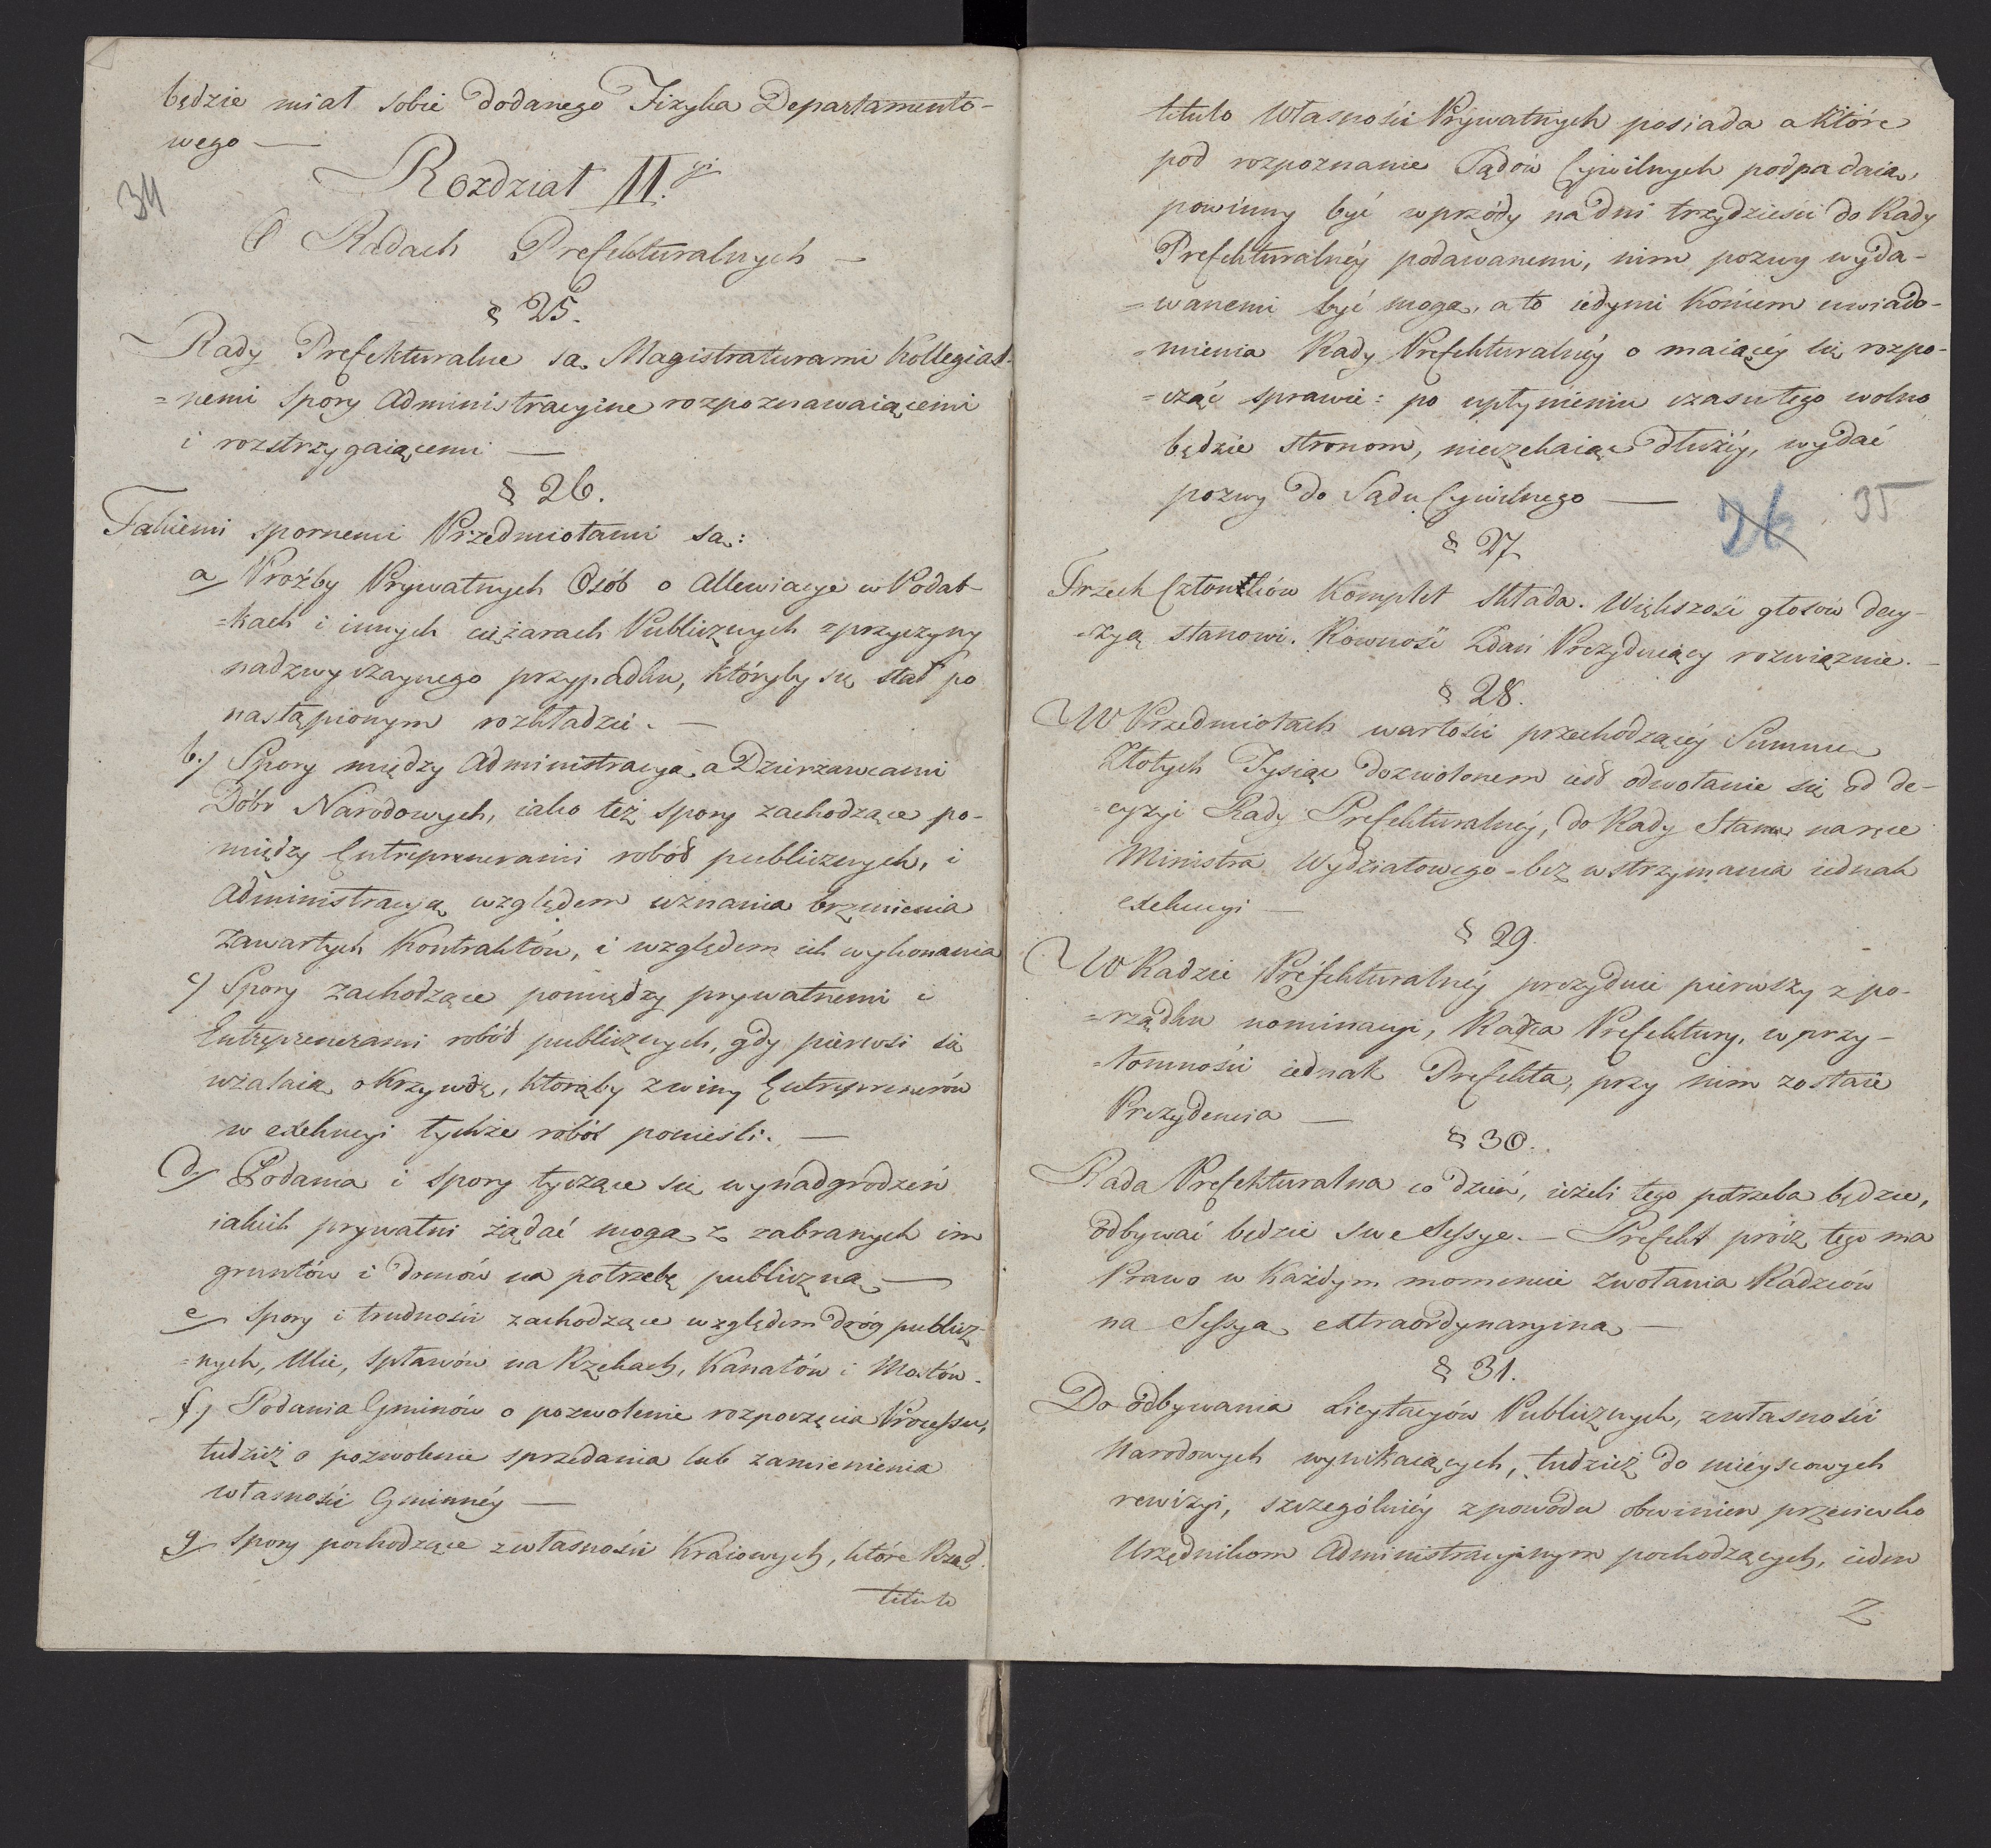 będzie miał sobie dodanego Fizyka Departamento-
wego —
34
Rozdział II.gi
O Radach Prefekturalnych —
§ 25.
Rady Prefekturalne są Magistraturami Kollegial-
=nemi spory Administracyine rozpoznawaiącemi
i rozstrzygaiącemi —
§ 26.
Takiemi spornemi Przedmiotami są:
a/ Proźby Prywatnych Osób o Allewiacye w Podat-
=kach i innych ciężarach Publicznych z przyczyny
nadzwyczaynego przypadku, któryby się stał po
nastąpionym rozkładzie. —
b.) Spory między Administracyą a Dzierżawcami
Dóbr Narodowych, iako też spory zachodzące po-
między Entreprenerami robót publicznych, i
Administracyą względem uznania brzmienia
zawartych Kontraktów, i względem ich wykonania
c) Spory zachodzące pomiędzy prywatnemi i
Entreprenerami robót publicznych, gdy pierwsi się
użalaią o krzywdę, którąby z winy Entreprenerów
w exekucyi tychże robót ponieśli. —
d/ Podania i spory tyczące się wynadgrodzeń
iakich prywatni żądać mogą z zabranych im
gruntów i domów na potrzebę publiczną —
e/ Spory i trudności zachodzące względem dróg publicz-
=nych, Ulic, spławów na Rzekach, Kanałów i Mostów.
f) Podania Gminów o pozwolenie rozpoczęcia Processu,
tudzież o pozwolenie sprzedania lub zamienienia
własności Gminnéy —
g/ Spory pochodzące z własności Kraiowych, które Rząd
titulo
titulo Własności Prywatnych posiada a które
pod rozpoznanie Sądów Cywilnych podpadaią,
powinny być wprzódy na dni trzydzieści do Rady
Prefekturalnéy podawanemi, nim pozwy wyda-
=wanemi być mogą, a to iedynie końcem uwiado-
=mienia Rady Prefekturalnéy o maiącéy się rozpo-
=cząć sprawie: po upłynieniu czasu tego wolno
będzie stronom, nieczekaiąc dłużéy, wydać
pozwy do Sądu Cywilnego —
26 35
§ 27
Trzech Członków Komplet składa. Większość głosów decy-
=zyą stanowi. Równość Zdań Prezyduiący rozwiąznie. —
§ 28.
W Przedmiotach wartości przechodzącéy Summę
Złotych Tysiąc dozwolonem iest odwołanie się od de-
=cyzyi Rady Prefekturalnéy, do Rady Stanu na ręce
Ministra Wydziałowego - bez wstrzymania iednak
exekucyi —
§ 29.
W Radzie Préfekturalnéy prezyduie pierwszy z po-
=rządku nominacyi, Radca Prefektury, w przy-
=tomności iednak Prefekta, przy nim zostaie
Prezydencia —
§ 30.
Rada Prefekturalna co dzień, ieżeli tego potrzeba będzie,
odbywać będzie swe Sessye. — Prefekt prócz tego ma
Prawo w każdym momencie zwołania Radzców
na Sessyą extraordynaryiną —
§ 31.
Do odbywania Licytacyów Publicznych, z własności
Narodowych wynikaiących, tudzież do mieyscowych
rewizyi, szczególniéy z powodu obwinien przeciwko
Urzędnikom Administracyinym pochodzących, ieden
Z